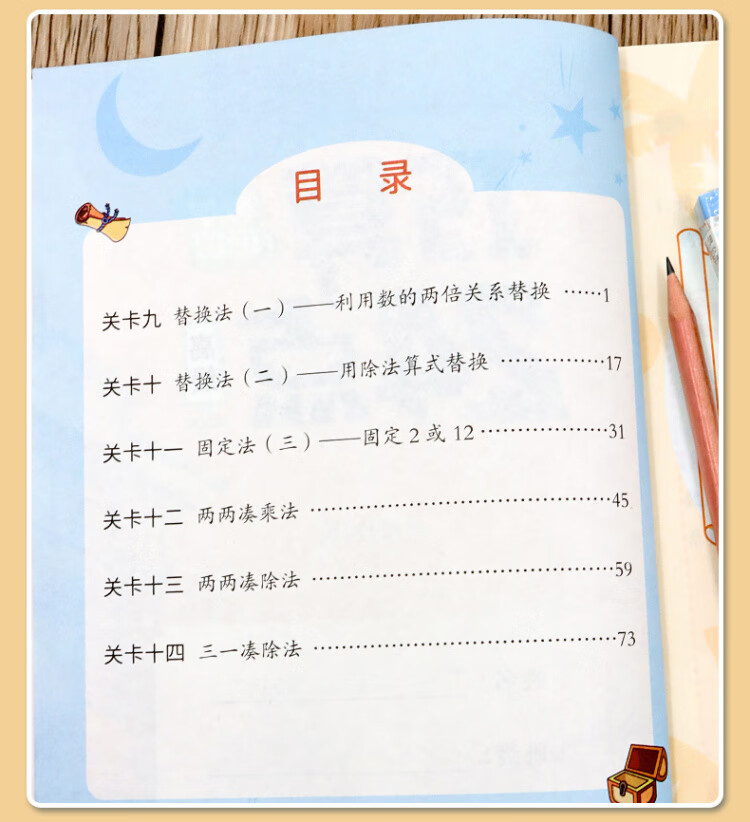 目 录
关卡九 替换法（一）——利用数的两倍关系替换 ……1
关卡十 替换法（二）——用除法算式替换 ……………17
关卡十一 固定法（三）——固定 2 或 12 ………………31
关卡十二 两两凑乘法 ……………………………………45
关卡十三 两两凑除法 ……………………………………59
关卡十四 三一凑除法 ……………………………………73